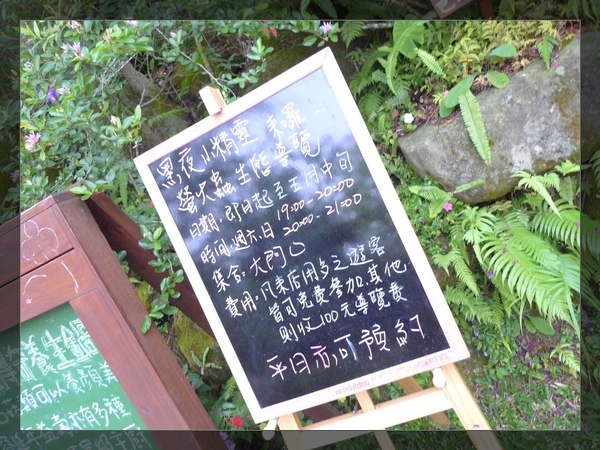 黑夜小精靈 來囉
螢火蟲生態導覽
日期:即日起至五月中旬
時間:週六.日 19:00-20:00
20:00-21:00
集合:大門口
費用:凡來店用多之遊客
皆可免費參加.其他
則收100元導覽費
平日亦可預約
養生鍋
可以養顏美
有多種